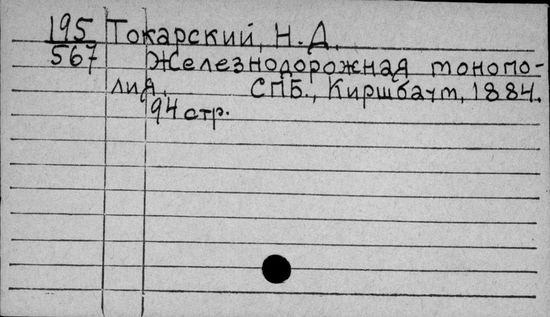 195 Токарский, Н.Д.
567 Железнодорожная монопо-
лия. СПБ., Киршбаум, 1884.
94 стр.